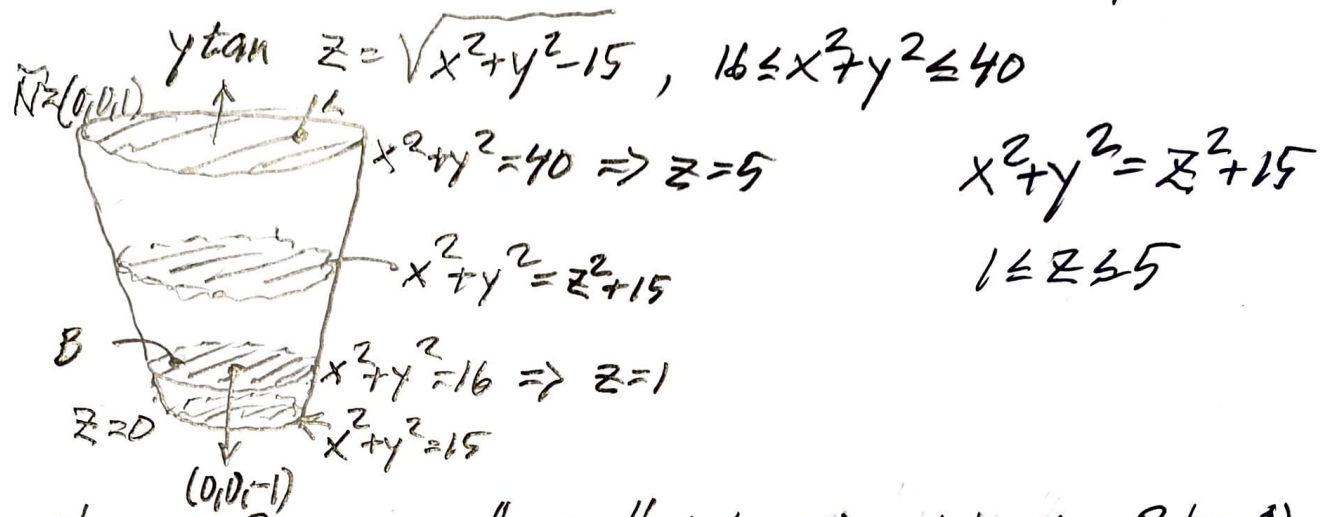 ytan z = √(x²+y²-15) , 16≤x²+y²≤40
N=(0,0,1)
x²+y²=40 => z=5
x²+y²=z²+15
x²+y²=z²+15
1≤z≤5
B
x²+y²=16 => z=1
z=0
x²+y²=15
(0,0,-1)